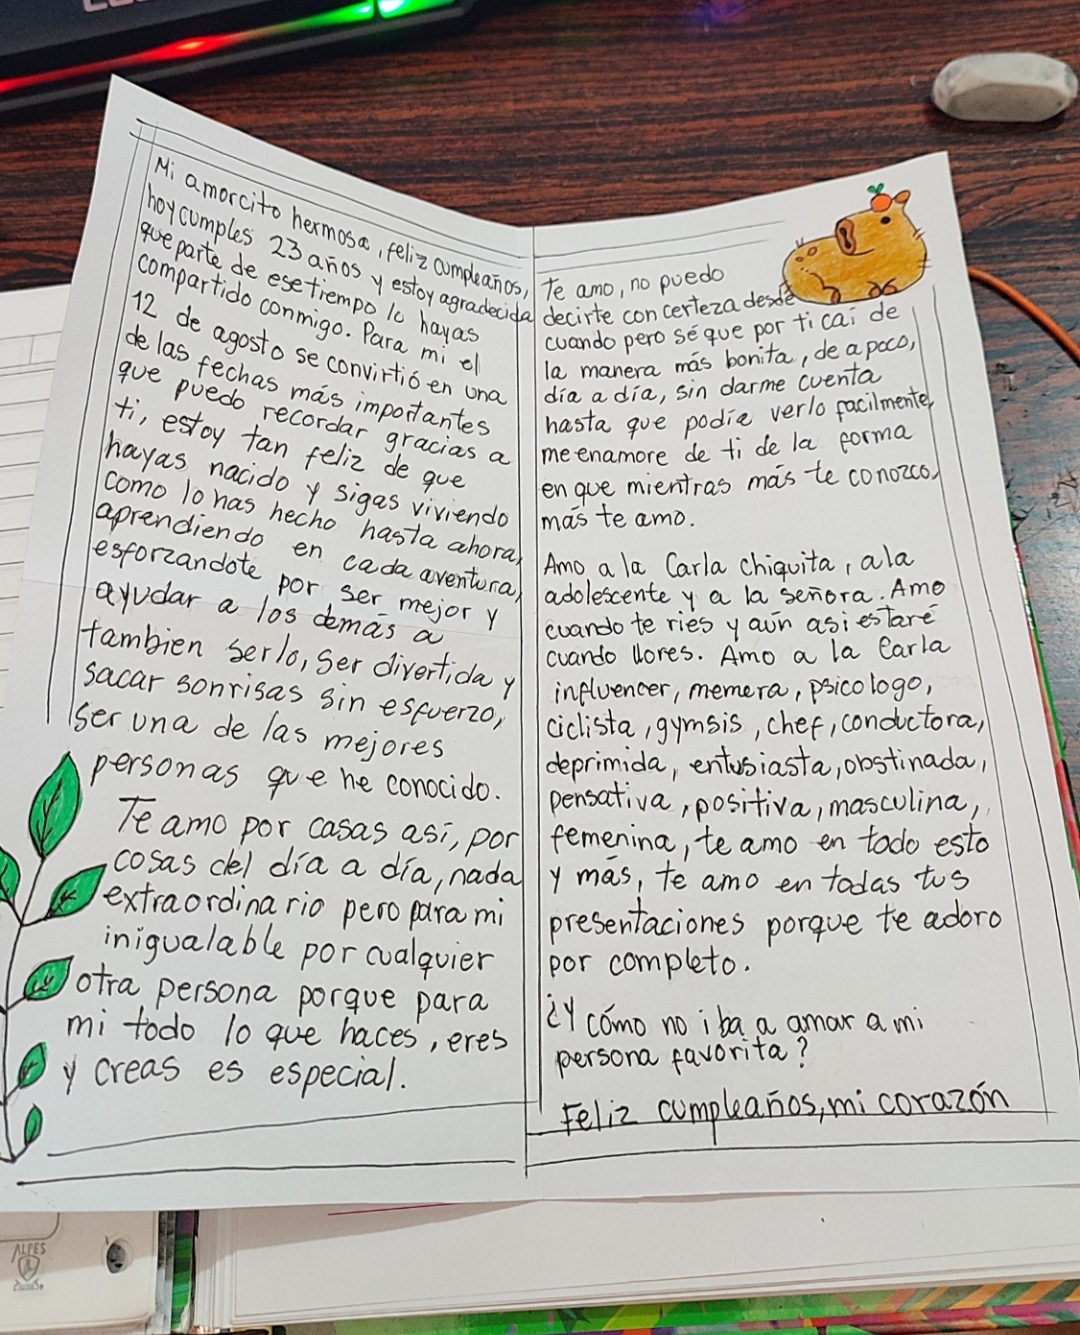 Mi amorcito hermosa, feliz cumpleaños,
hoy cumples 23 años y estoy agradecida
que parte de ese tiempo lo hayas
compartido conmigo. Para mi el
12 de agosto se convirtió en una
de las fechas más importantes
que puedo recordar gracias a
ti, estoy tan feliz de que
hayas nacido y sigas viviendo
como lo has hecho hasta ahora,
aprendiendo en cada aventura,
esforzandote por ser mejor y
ayudar a los demás a
tambien serlo, ser divertida y
sacar sonrisas sin esfuerzo,
ser una de las mejores
personas que he conocido.
Te amo por casas así, por
cosas del día a día, nada
extraordinario pero para mi
inigualable por cualquier
otra persona porque para
mi todo lo que haces, eres
y creas es especial.
Te amo, no puedo
decirte con certeza desde
cuando pero sé que por ti caí de
la manera más bonita, de a poco,
día a día, sin darme cuenta
hasta que podía verlo facilmente,
me enamore de ti de la forma
en que mientras más te conozco,
más te amo.
Amo a la Carla chiquita, a la
adolescente y a la señora. Amo
cuando te ries y aún asi estaré
cuando llores. Amo a la Carla
influencer, memera, psicologo,
ciclista, gymsis, chef, conductora,
deprimida, entusiasta, obstinada,
pensativa, positiva, masculina,
femenina, te amo en todo esto
y más, te amo en todas tus
presentaciones porque te adoro
por completo.
¿Y cómo no iba a amar a mi
persona favorita?
Feliz cumpleaños, mi corazón
ALPES